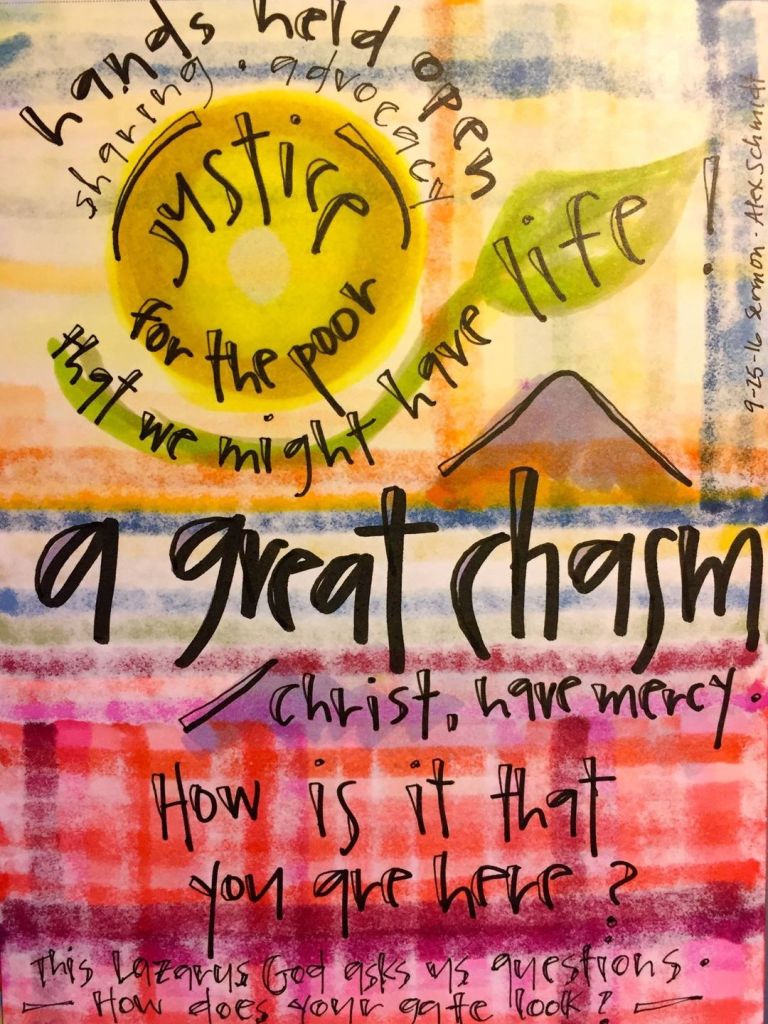 hands held open
sharing · advocacy
justice
for the poor
that we might have life!
9-25-16 sermon - Alex Schmidt
a great chasm
christ, have mercy.
How is it that
you are here?
This Lazarus God asks us questions.
— How does your gate look? —